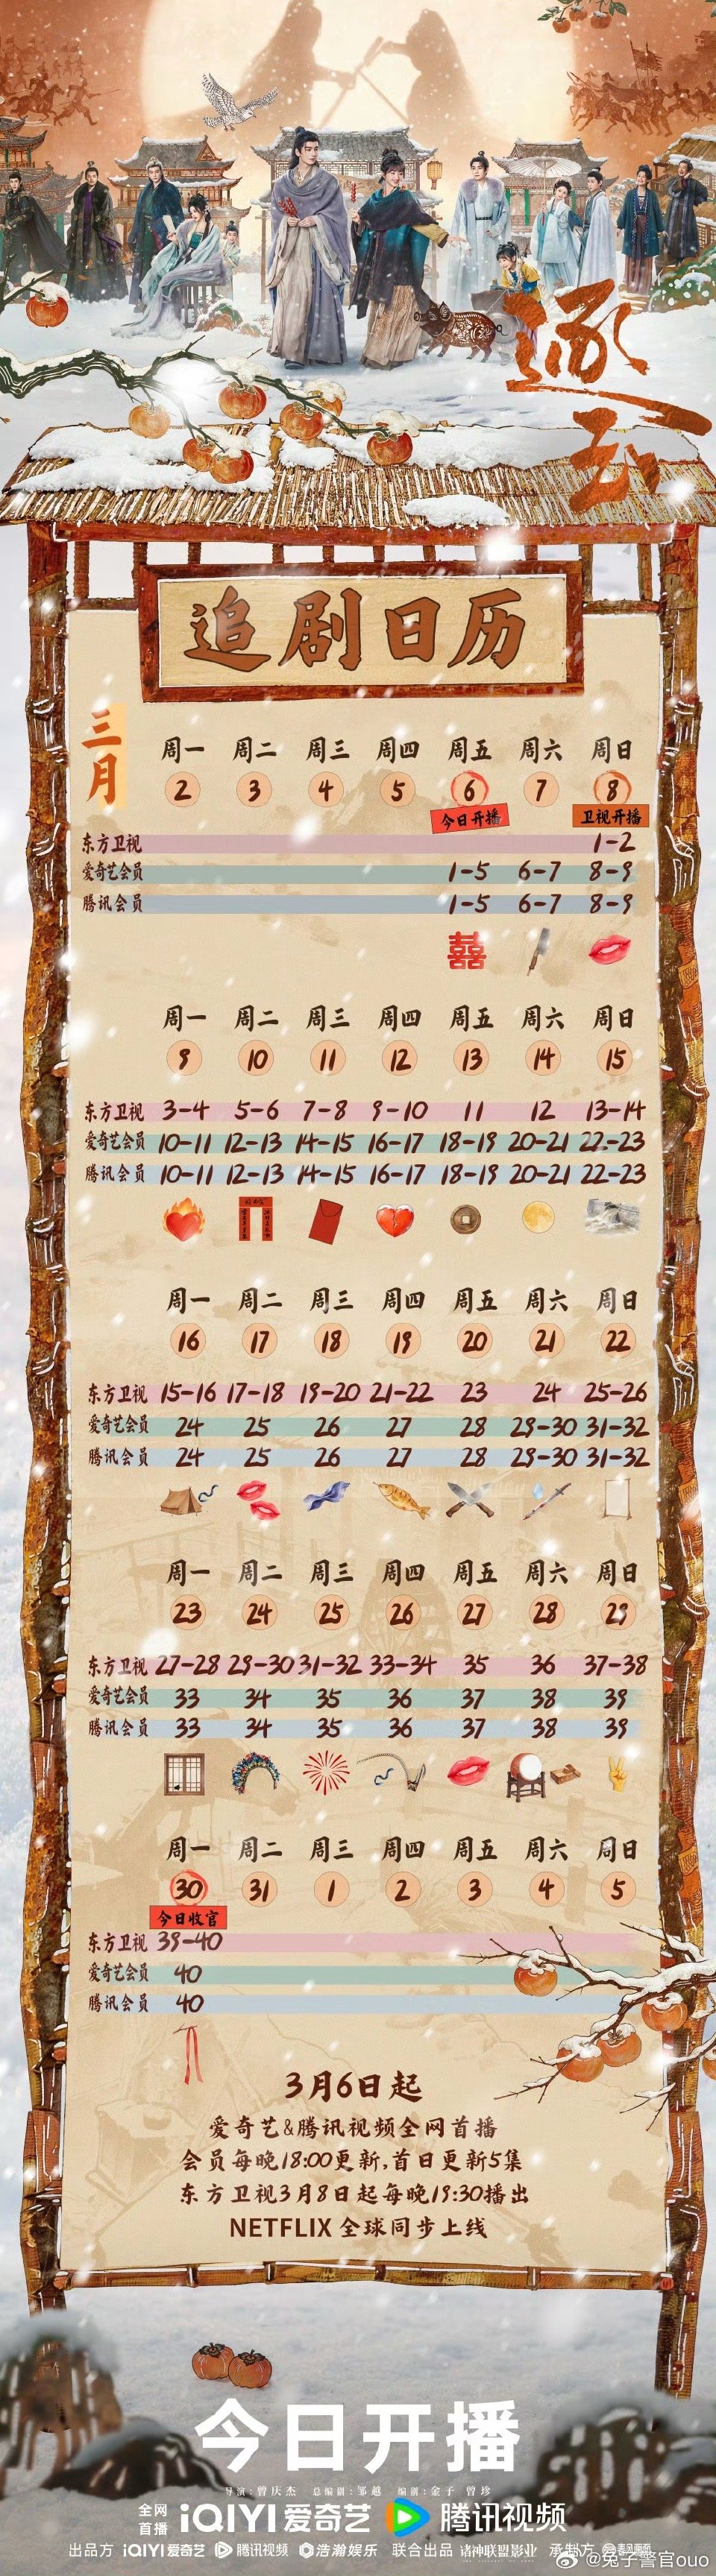 逐玉
追剧日历
三月
周一 周二 周三 周四 周五 周六 周日
2 3 4 5 6 7 8
今日开播 卫视开播
东方卫视 1-2
爱奇艺会员 1-5 6-7 8-9
腾讯会员 1-5 6-7 8-9
囍
周一 周二 周三 周四 周五 周六 周日
9 10 11 12 13 14 15
东方卫视 3-4 5-6 7-8 9-10 11 12 13-14
爱奇艺会员 10-11 12-13 14-15 16-17 18-19 20-21 22-23
腾讯会员 10-11 12-13 14-15 16-17 18-19 20-21 22-23
周一 周二 周三 周四 周五 周六 周日
16 17 18 19 20 21 22
东方卫视 15-16 17-18 19-20 21-22 23 24 25-26
爱奇艺会员 24 25 26 27 28 29-30 31-32
腾讯会员 24 25 26 27 28 29-30 31-32
周一 周二 周三 周四 周五 周六 周日
23 24 25 26 27 28 29
东方卫视 27-28 29-30 31-32 33-34 35 36 37-38
爱奇艺会员 33 34 35 36 37 38 39
腾讯会员 33 34 35 36 37 38 39
周一 周二 周三 周四 周五 周六 周日
30 31 1 2 3 4 5
今日收官
东方卫视 39-40
爱奇艺会员 40
腾讯会员 40
3月6日起
爱奇艺&腾讯视频全网首播
会员每晚18:00更新,首日更新5集
东方卫视3月8日起每晚19:30播出
NETFLIX 全球同步上线
今日开播
导演:曾庆杰 总编剧:邹越 编剧:金子 曾珍
全网首播 iQIYI 爱奇艺 腾讯视频
出品方 iQIYI 爱奇艺 腾讯视频 浩瀚娱乐 联合出品 诸神联盟影业 承制方
@兔子警官ouo